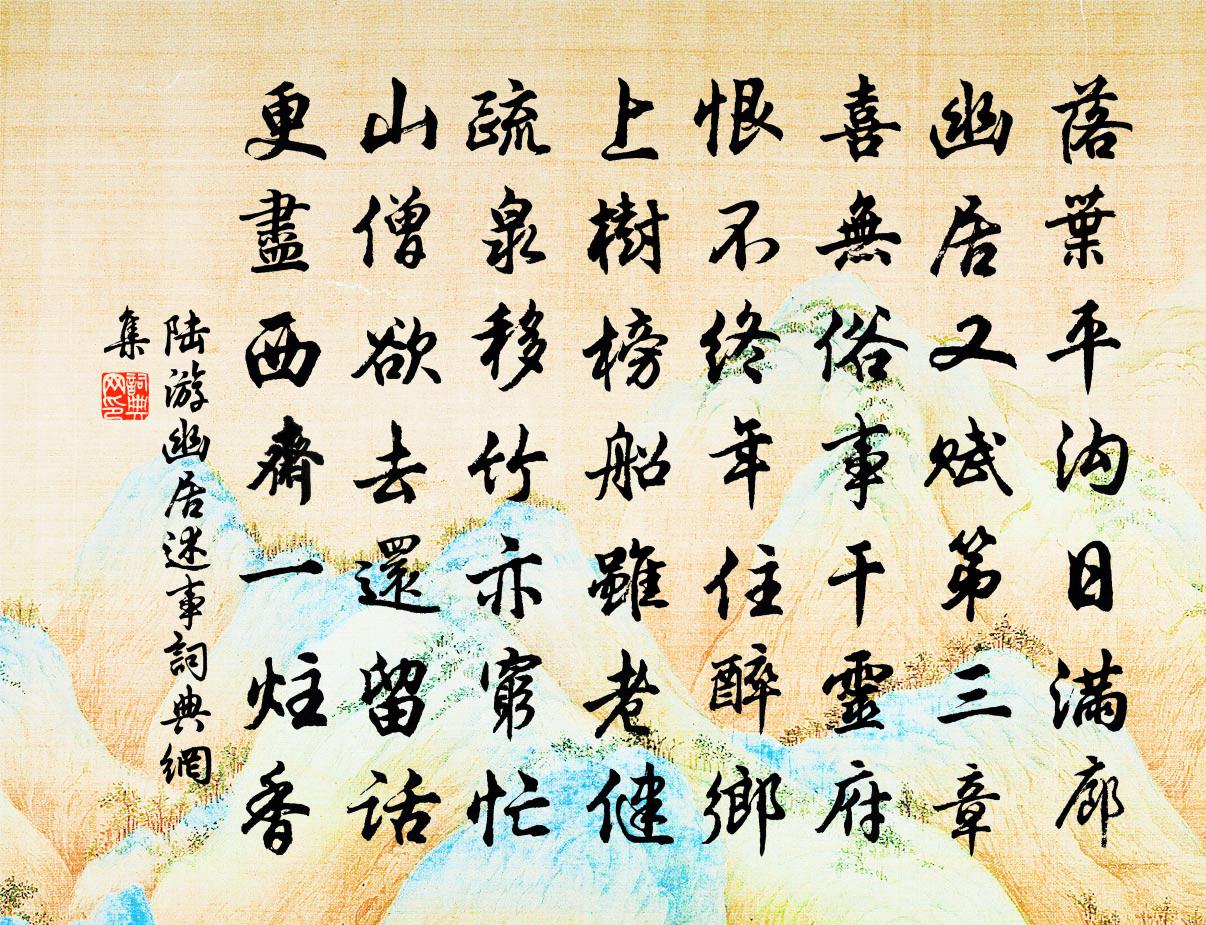 落葉平沟日滿廊
幽居又賦第三章
喜無俗事干靈府
恨不終年住醉鄉
上樹榜船雖老健
疏泉移竹亦窮忙
山僧欲去還留話
更盡西齋一炷香
陸游幽居述事詞典網
集
詞典
网印